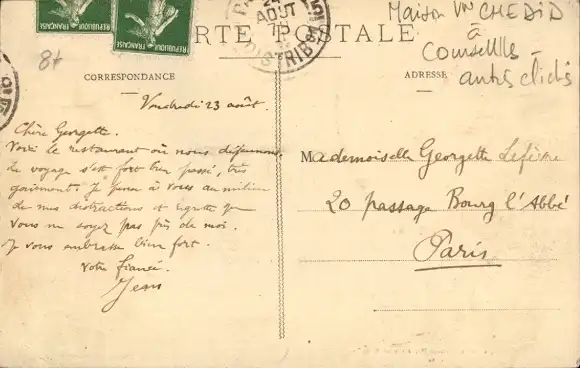 RÉPUBLIQUE FRANÇAISE
RÉPUBLIQUE FRANÇAISE
24 AOUT
DISTRIB
CARTE POSTALE
Maison
à
Courselles
antres clichés
8t
CORRESPONDANCE
ADRESSE
Vendredi 23 août.
Chère Georgette.
Voici le restaurant où nous déjeunons.
Le voyage s'est fort bien passé, très
gaiement. Je pense à vous au milieu
de mes distractions et regrette que
vous ne soyez pas près de moi.
Je vous embrasse bien fort.
Votre fiancé.
Jean
Mademoiselle Georgette Lefèvre
20 passage Bourg l'Abbé
Paris